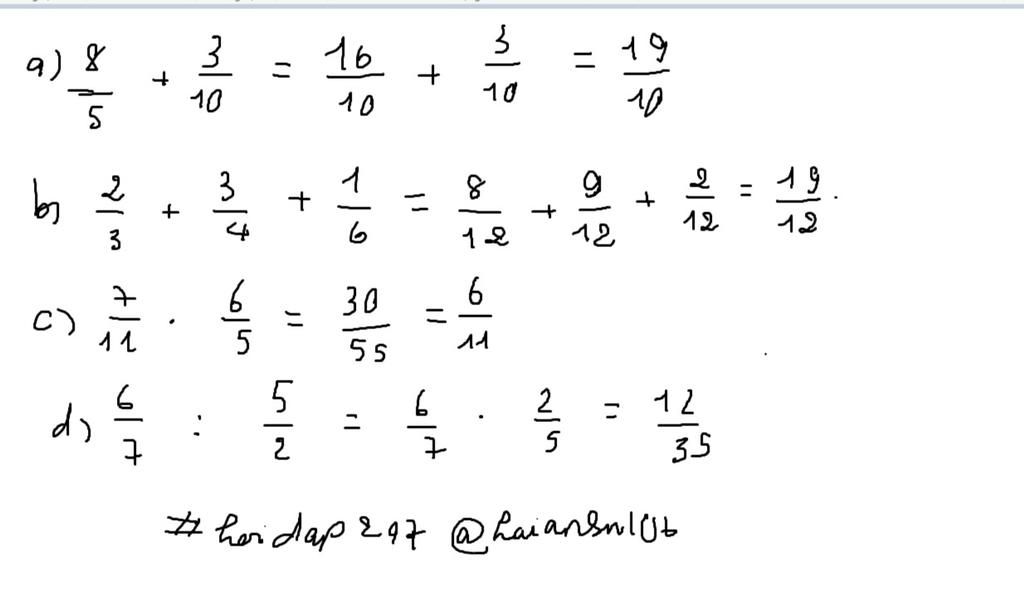 a) 8/5 + 3/10 = 16/10 + 3/10 = 19/10
b) 2/3 + 3/4 + 1/6 = 8/12 + 9/12 + 2/12 = 19/12.
c) 7/11 . 6/5 = 30/55 = 6/11
d) 6/7 : 5/2 = 6/7 . 2/5 = 12/35
# hoi dap 297